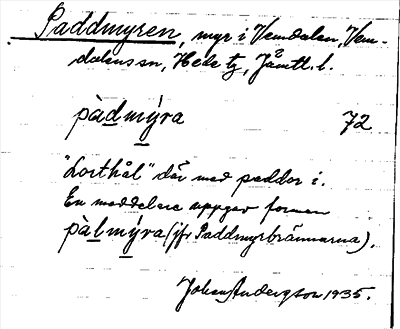 Paddmyren, myr i Vemdalen, Vem-
dalens sn, Hede tg, Jämtl. l.
pàdmýra 72
"Lorthål" där med paddor i.
En meddelare uppgav formen
pàlmýra (jfr Paddmyrbrännorna).
Johan Anderzson 1935.